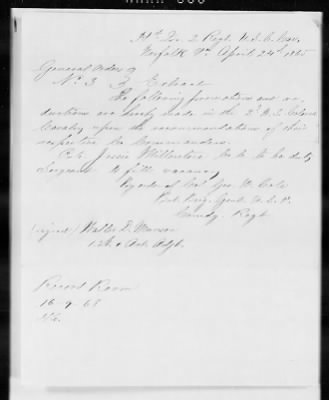 Hd. Qrs. 2 Regt. U.S.C. Cav.
Norfolk Va. April 24th 1865
General Orders
No. 3 Extract
The following promotions and re
ductions are hereby made in the 2d U.S. Colored
Cavalry upon the recommendations of their
respective Co. Commanders.
Pvt. Jessie to be duty
Sergeant to fill vacancy
By order of Col. Geo. W. Cole
Brig. Genl. U.S.V.
Comdg Regt
(signed) Walter D.
1st Lt. & Act. Adjt.
Record Room